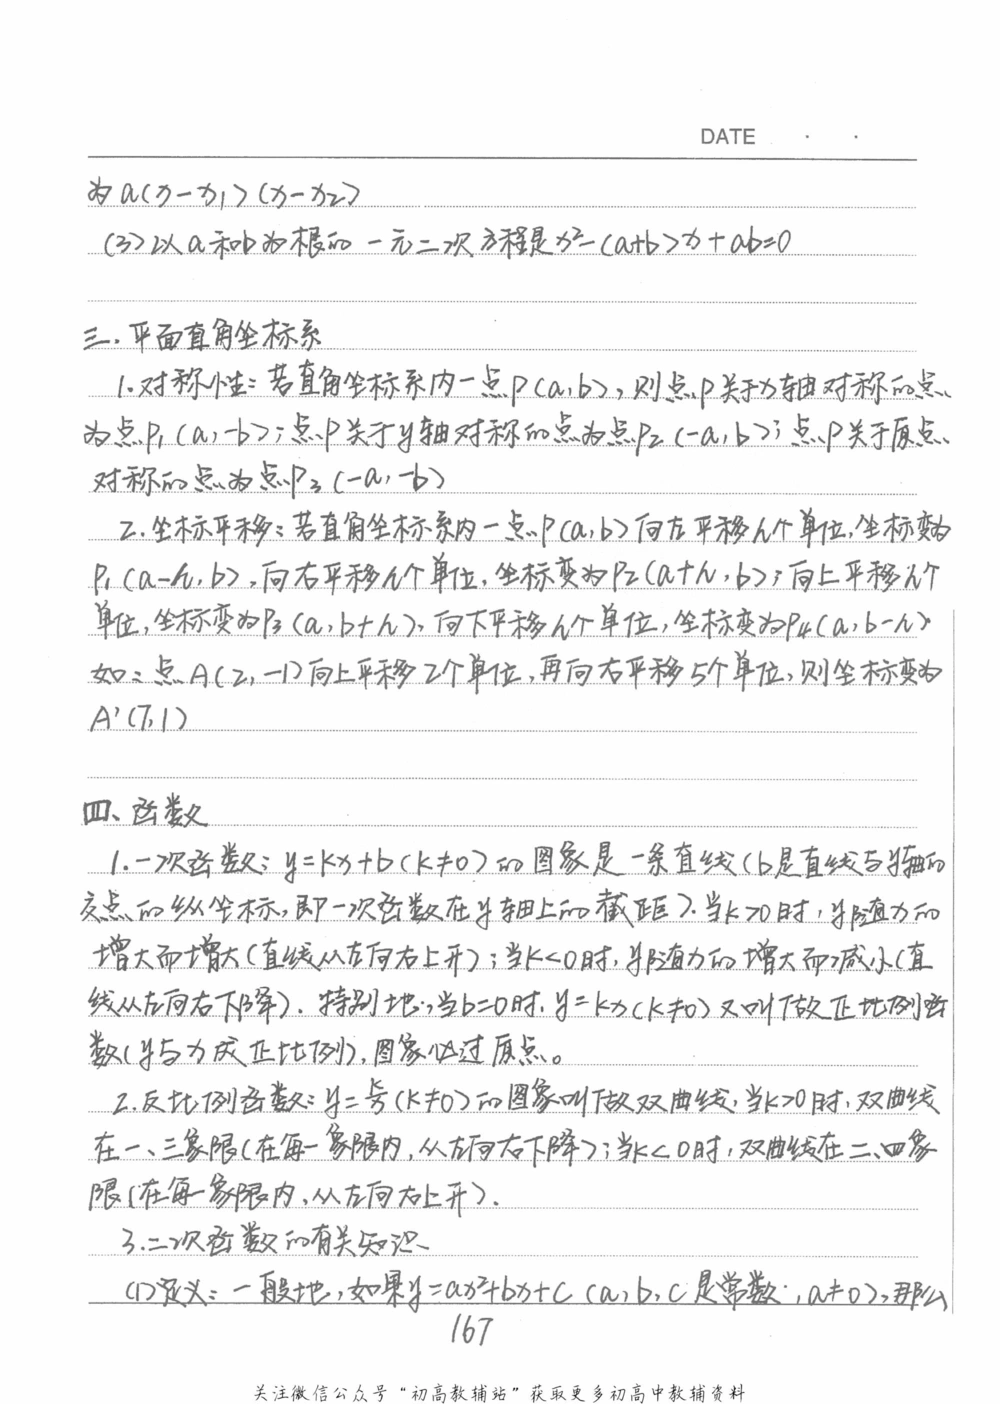 DATE · ·
为a(x-x₁)(x-x₂)
(3)以a和b为根的一元二次方程是x²-(a+b)x+ab=0
三.平面直角坐标系
1.对称性:若直角坐标系内一点P(a,b),则点P关于x轴对称的点
为点P₁(a,-b);点P关于y轴对称的点为点P₂(-a,b);点P关于原点
对称的点为点P₃(-a,-b)
2.坐标平移:若直角坐标系内一点P(a,b)向左平移h个单位,坐标变为
P₁(a-h,b),向右平移h个单位,坐标变为P₂(a+h,b);向上平移h个
单位,坐标变为P₃(a,b+h),向下平移h个单位,坐标变为P₄(a,b-h).
如:点A(2,-1)向上平移2个单位,再向右平移5个单位,则坐标变为
A'(7,1)
四、函数
1.一次函数:y=kx+b(k≠0)的图象是一条直线(b是直线与y轴的
交点的纵坐标,即一次函数在y轴上的截距).当k>0时,y随x的
增大而增大(直线从左向右上升);当k<0时,y随x的增大而减小(直
线从左向右下降).特别地:当b=0时,y=kx(k≠0)又叫做正比例函
数(y与x成正比例),图象必过原点。
2.反比例函数:y=k/x(k≠0)的图象叫做双曲线,当k>0时,双曲线
在一、三象限(在每一象限内,从左向右下降);当k<0时,双曲线在二、四象
限(在每一象限内,从左向右上升).
3.二次函数的有关知识、
(1)定义:一般地,如果y=ax²+bx+c(a,b,c是常数,a≠0),那么
167
关注微信公众号“初高教辅站”获取更多初高中教辅资料